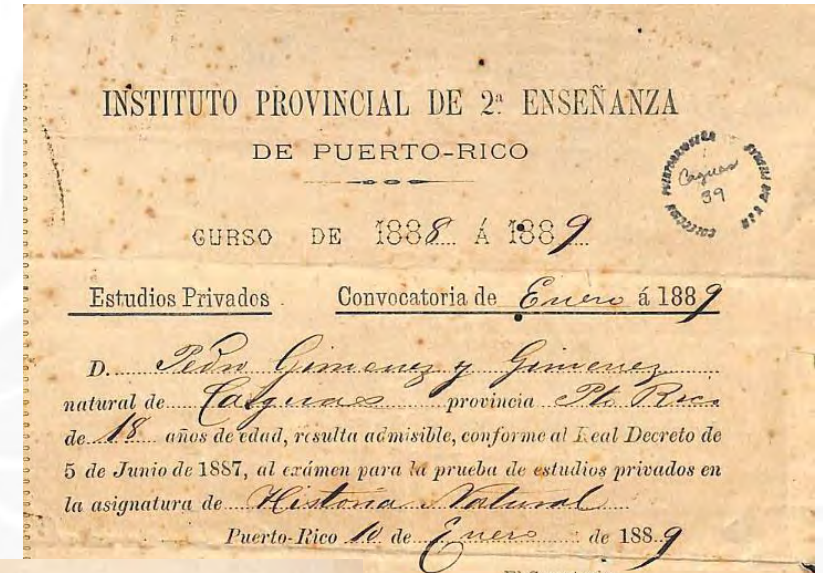 INSTITUTO PROVINCIAL DE 2ª ENSEÑANZA
DE PUERTO-RICO
Caguas
39
CURSO DE 1888 Á 1889
Estudios Privados. Convocatoria de Enero á 1889
D. Pedro Gimenez y Gimenez
natural de Caguas provincia Pto Rico
de 18 años de edad, resulta admisible, conforme al Real Decreto de
5 de Junio de 1887, al exámen para la prueba de estudios privados en
la asignatura de Historia Natural
Puerto-Rico 10 de Enero de 1889